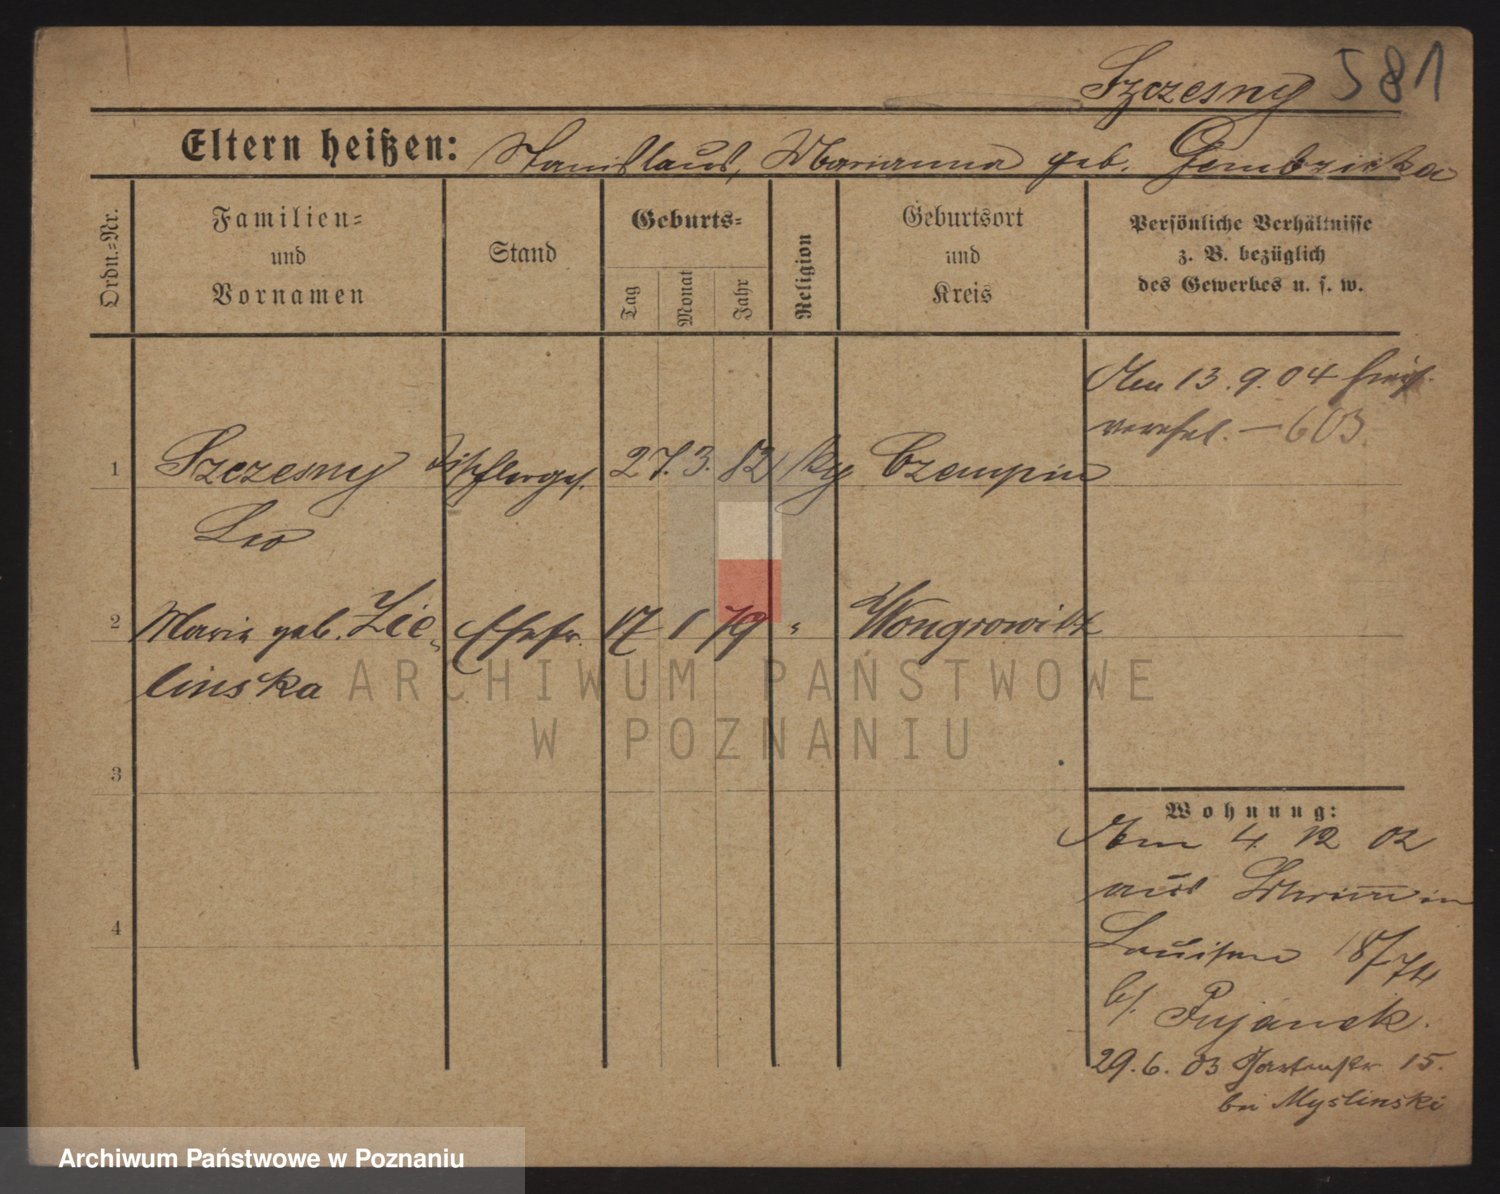 Szczesny 581
Eltern heißen: Stanislaus, Marianna geb. Gembzicka
Ordn.=Nr.
Familien=
und
Vornamen
Stand
Geburts=
Tag
Monat
Jahr
Religion
Geburtsort
und
Kreis
Persönliche Verhältnisse
z. B. bezüglich
des Gewerbes u. s. w.
Am 13.9.04 hier
verehel. — 603.
1 Szczesny Tischlerges. 27. 3. 82 Czempin
Leo
2 Marie geb. Zie- Ehefr. 17 1 79 " Wongrowitz
linska
ARCHIWUM PAŃSTWOWE
W POZNANIU
3
4
Wohnung:
Am 4 12 02
aus Schrimm in
Louisen 18/
b/
29.6.03 Gartenstr 15.
bei Myslinski
Archiwum Państwowe w Poznaniu